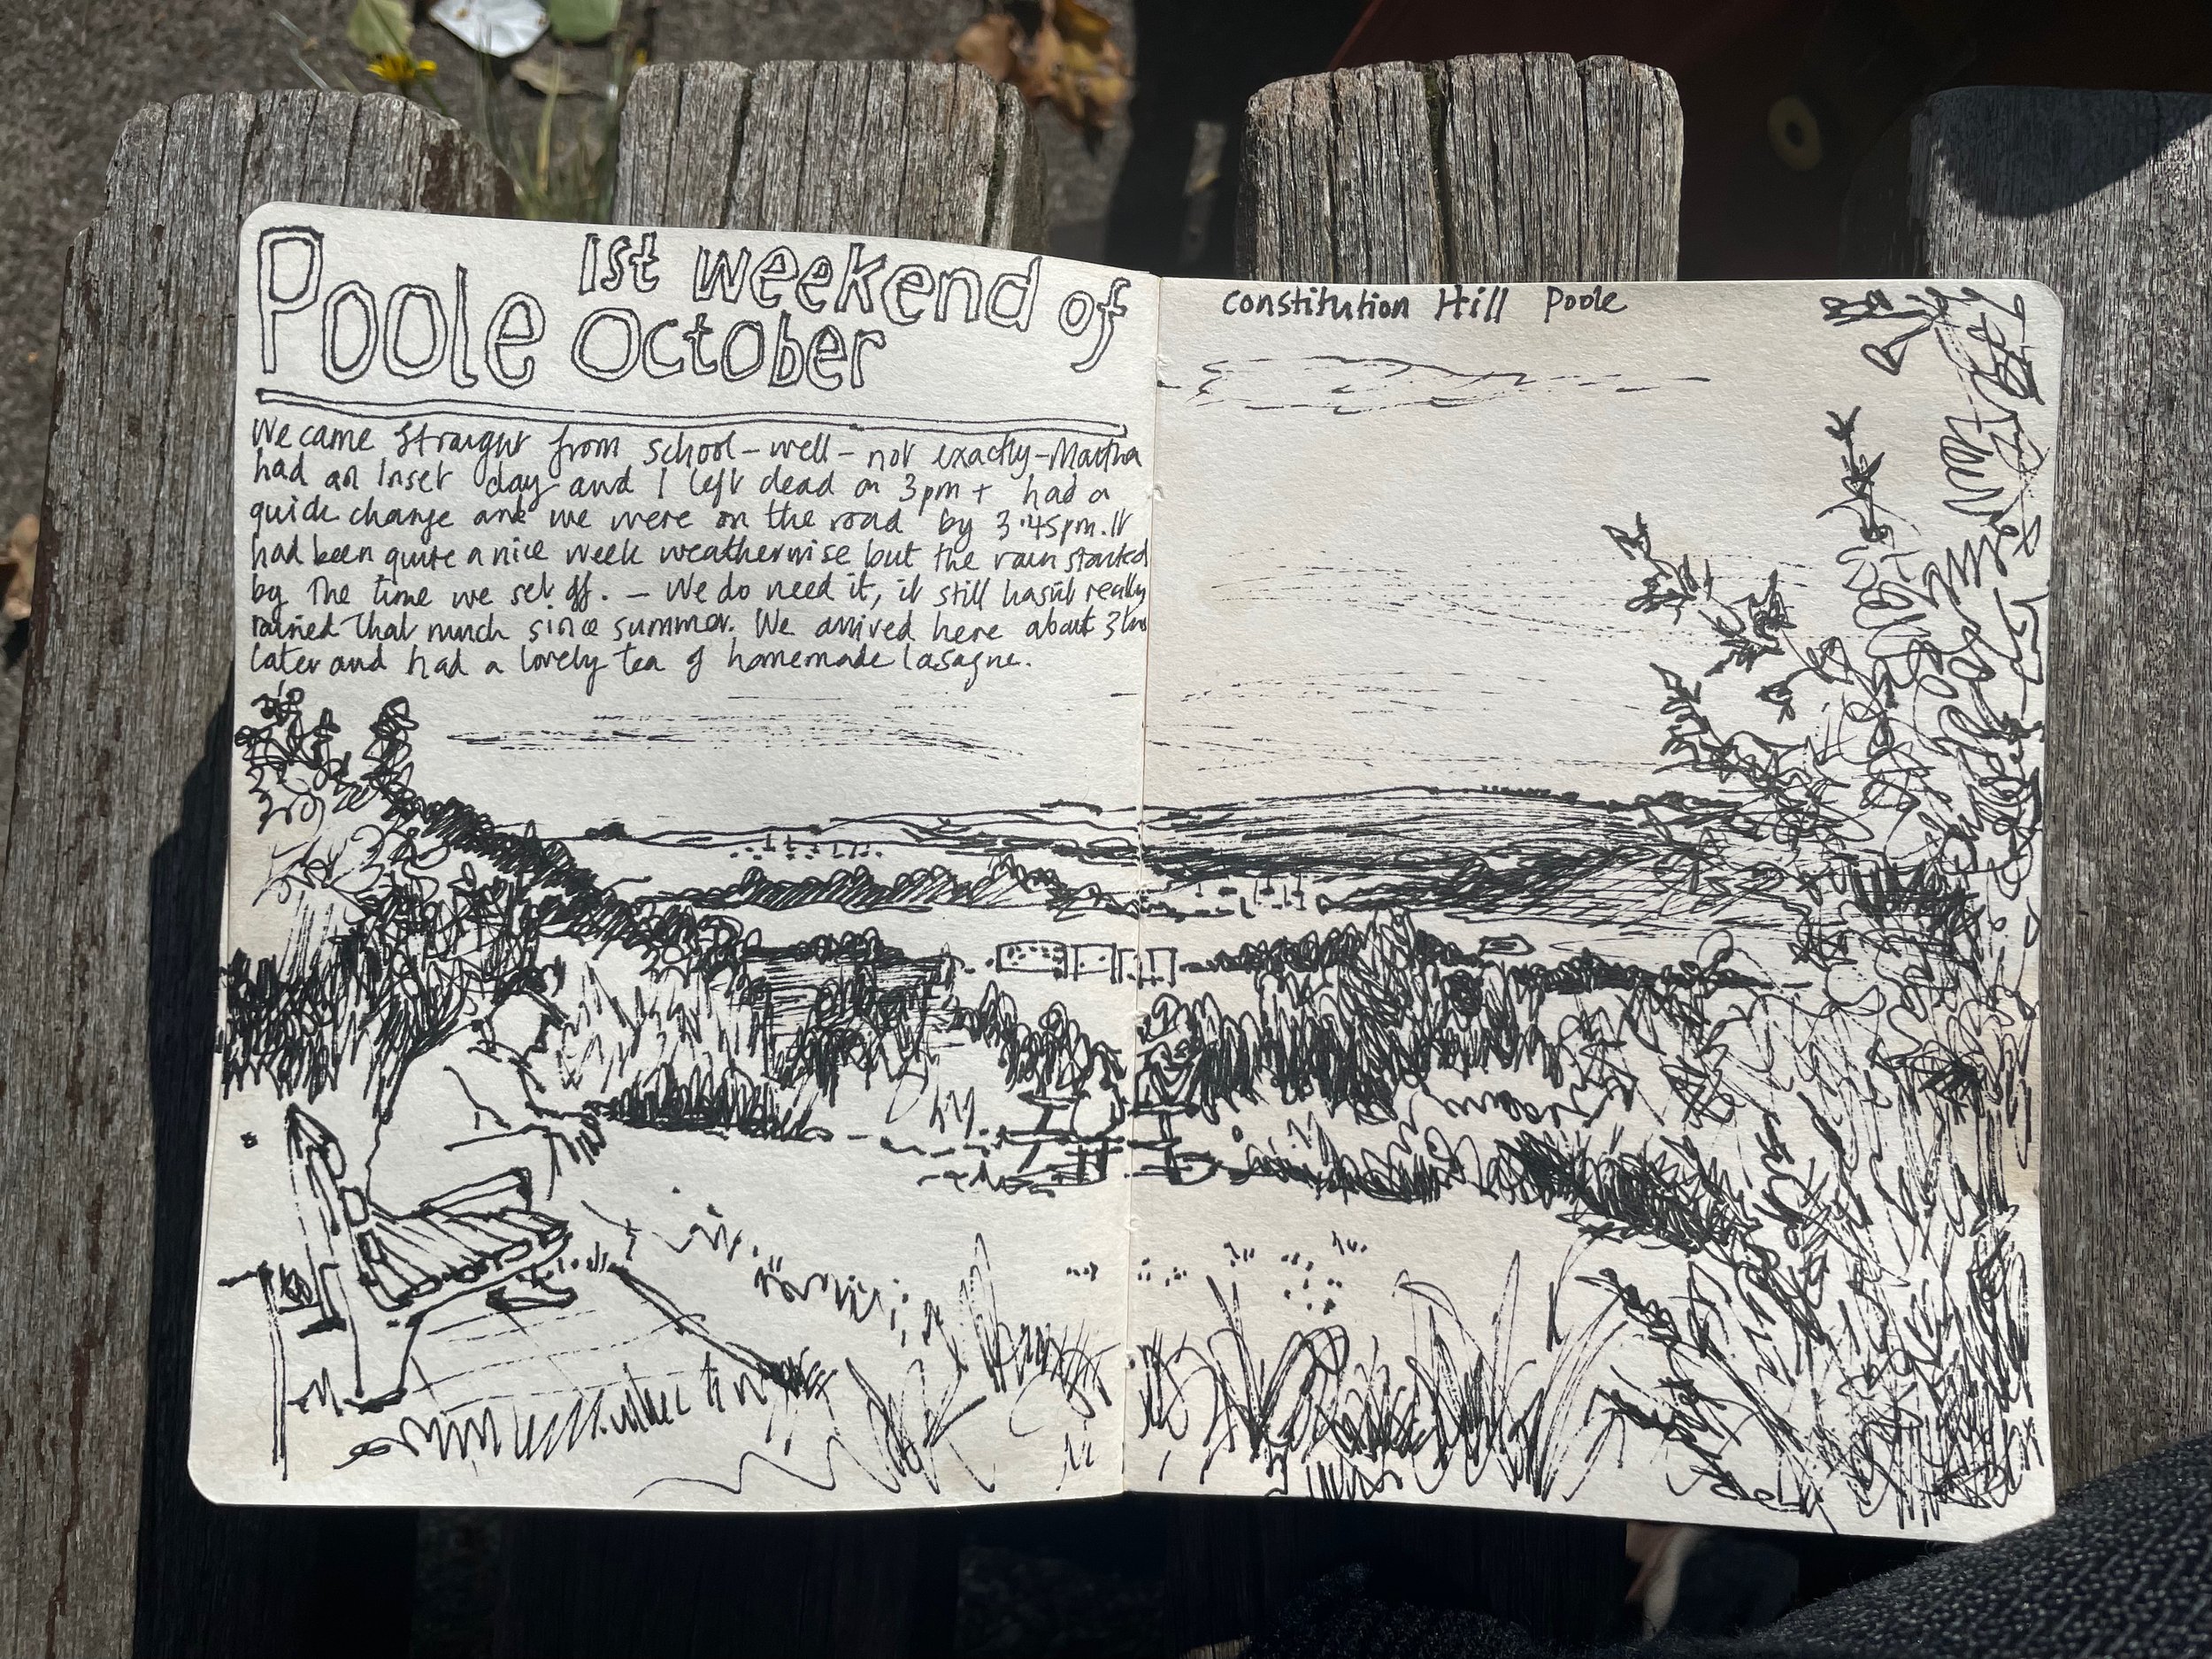 Poole 1st weekend of
October
We came straight from school – well – not exactly – Martha
had an Inset day and I left dead on 3pm + had a
quick change and we were on the road by 3.45pm. It
had been quite a nice week weatherwise but the rain started
by the time we set off. – We do need it, it still hasn't really
rained that much since summer. We arrived here about 3hrs
later and had a lovely tea of homemade lasagne.
Constitution Hill Poole